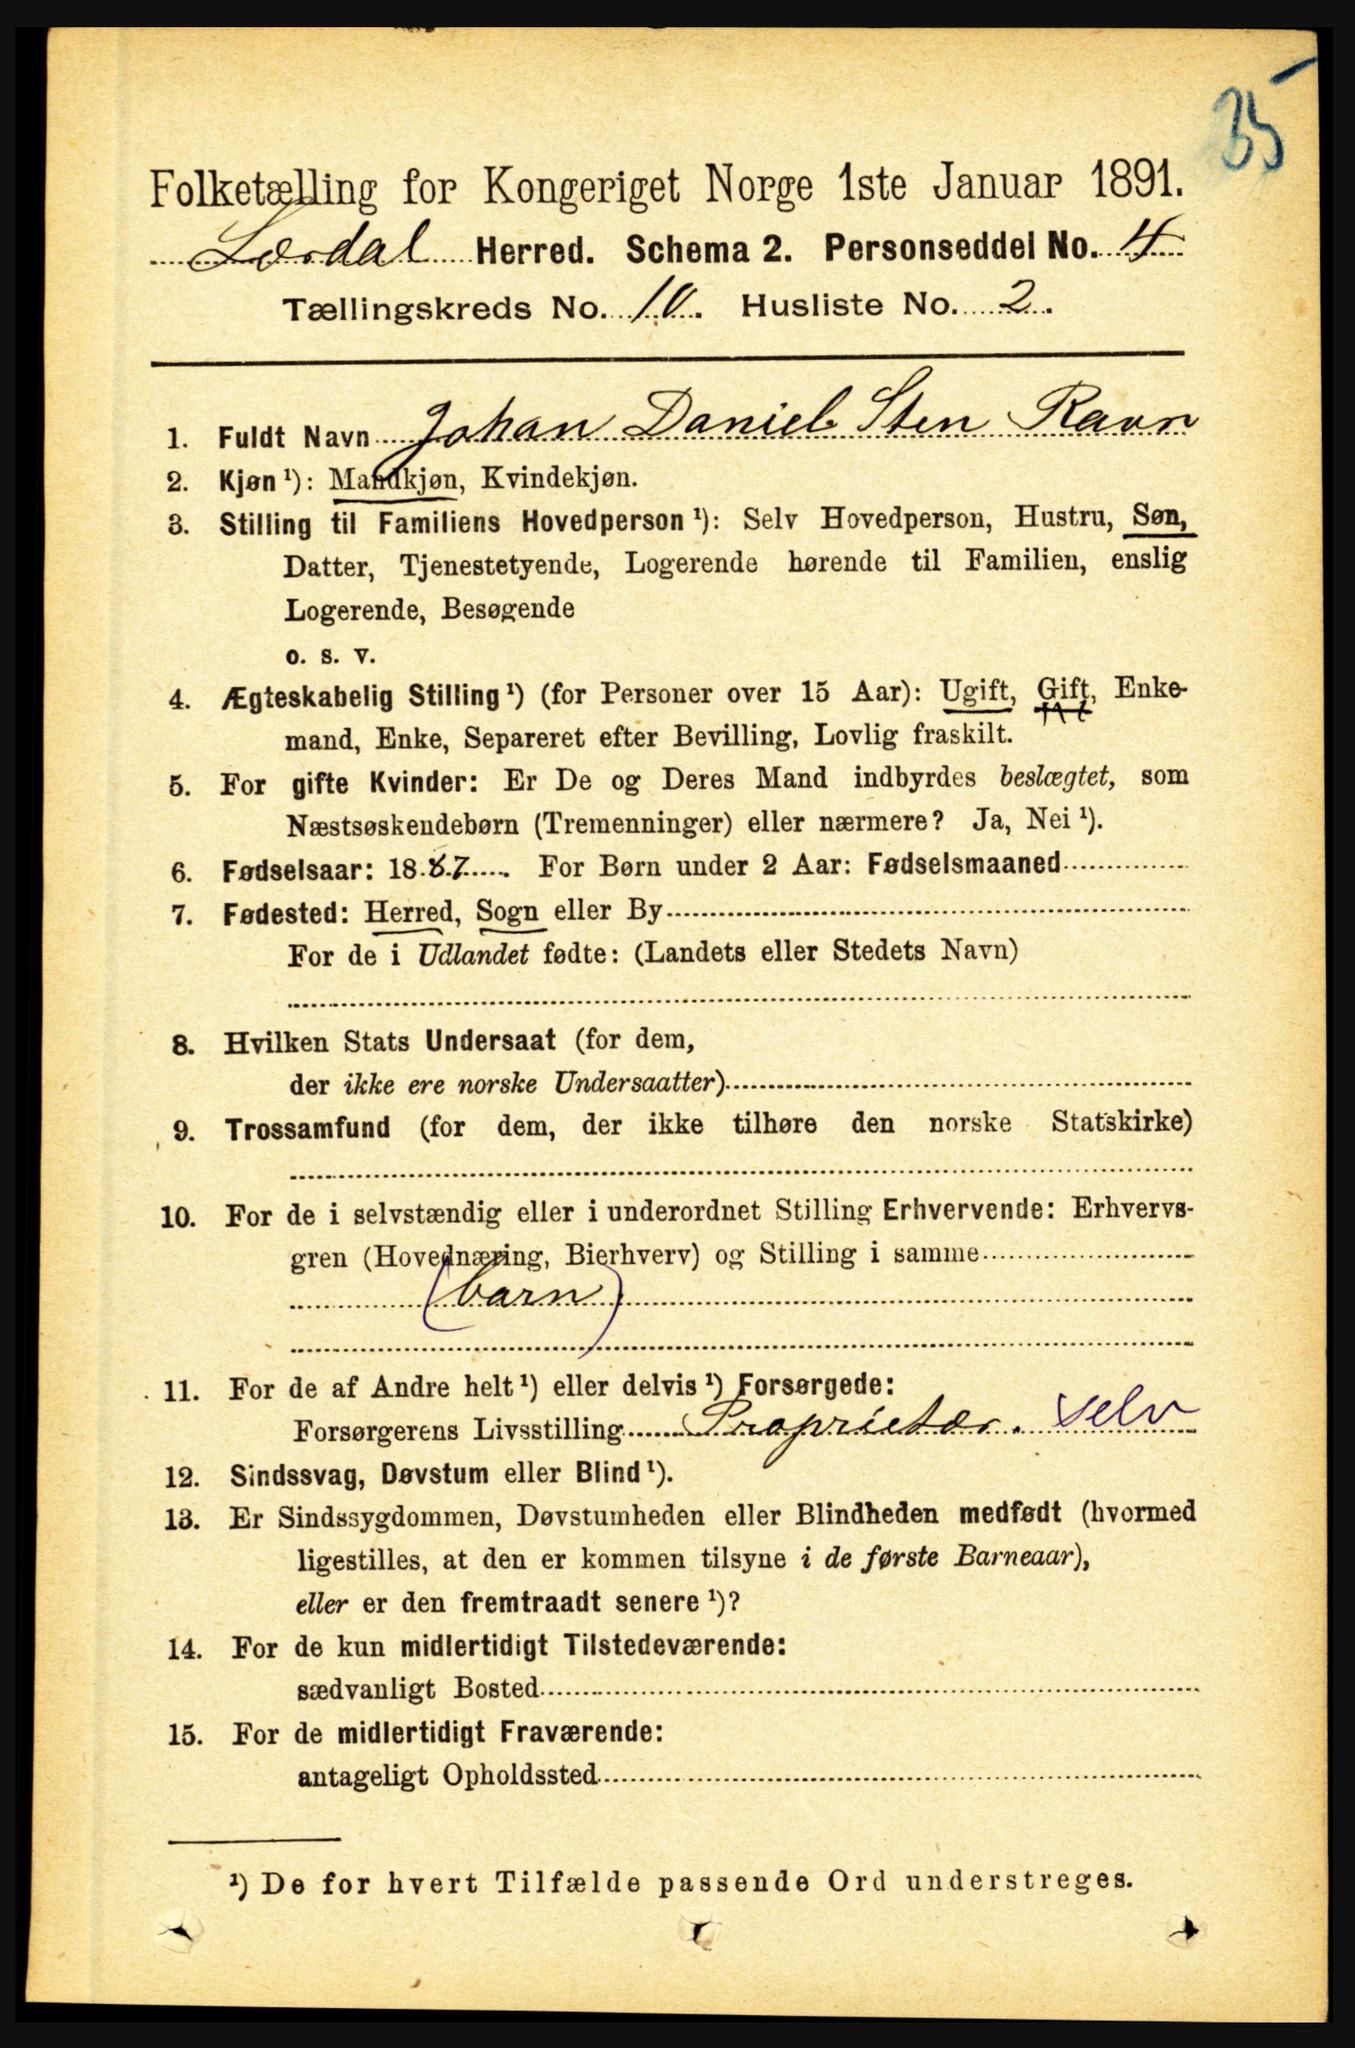 35
Folketælling for Kongeriget Norge 1ste Januar 1891.
Lærdal Herred. Schema 2. Personseddel No. 4
Tællingskreds No. 10. Husliste No. 2.
1. Fuldt Navn Johan Daniel Sten Ravn
2. Kjøn ¹): Mandkjøn, Kvindekjøn.
3. Stilling til Familiens Hovedperson ¹): Selv Hovedperson, Hustru, Søn,
Datter, Tjenestetyende, Logerende hørende til Familien, enslig
Logerende, Besøgende
o. s. v.
4. Ægteskabelig Stilling ¹) (for Personer over 15 Aar): Ugift, Gift, Enke-
mand, Enke, Separeret efter Bevilling, Lovlig fraskilt.
5. For gifte Kvinder: Er De og Deres Mand indbyrdes beslægtet, som
Næstsøskendebørn (Tremenninger) eller nærmere? Ja, Nei ¹).
6. Fødselsaar: 1887. For Børn under 2 Aar: Fødselsmaaned
7. Fødested: Herred, Sogn eller By
For de i Udlandet fødte: (Landets eller Stedets Navn)
8. Hvilken Stats Undersaat (for dem,
der ikke ere norske Undersaatter)
9. Trossamfund (for dem, der ikke tilhøre den norske Statskirke)
10. For de i selvstændig eller i underordnet Stilling Erhvervende: Erhvervs-
gren (Hovednæring, Bierhverv) og Stilling i samme
(barn)
11. For de af Andre helt ¹) eller delvis ¹) Forsørgede:
Forsørgerens Livsstilling Proprietær. selv
12. Sindssvag, Døvstum eller Blind ¹).
13. Er Sindssygdommen, Døvstumheden eller Blindheden medfødt (hvormed
ligestilles, at den er kommen tilsyne i de første Barneaar),
eller er den fremtraadt senere ¹)?
14. For de kun midlertidigt Tilstedeværende:
sædvanligt Bosted
15. For de midlertidigt Fraværende:
antageligt Opholdssted
¹) De for hvert Tilfælde passende Ord understreges.